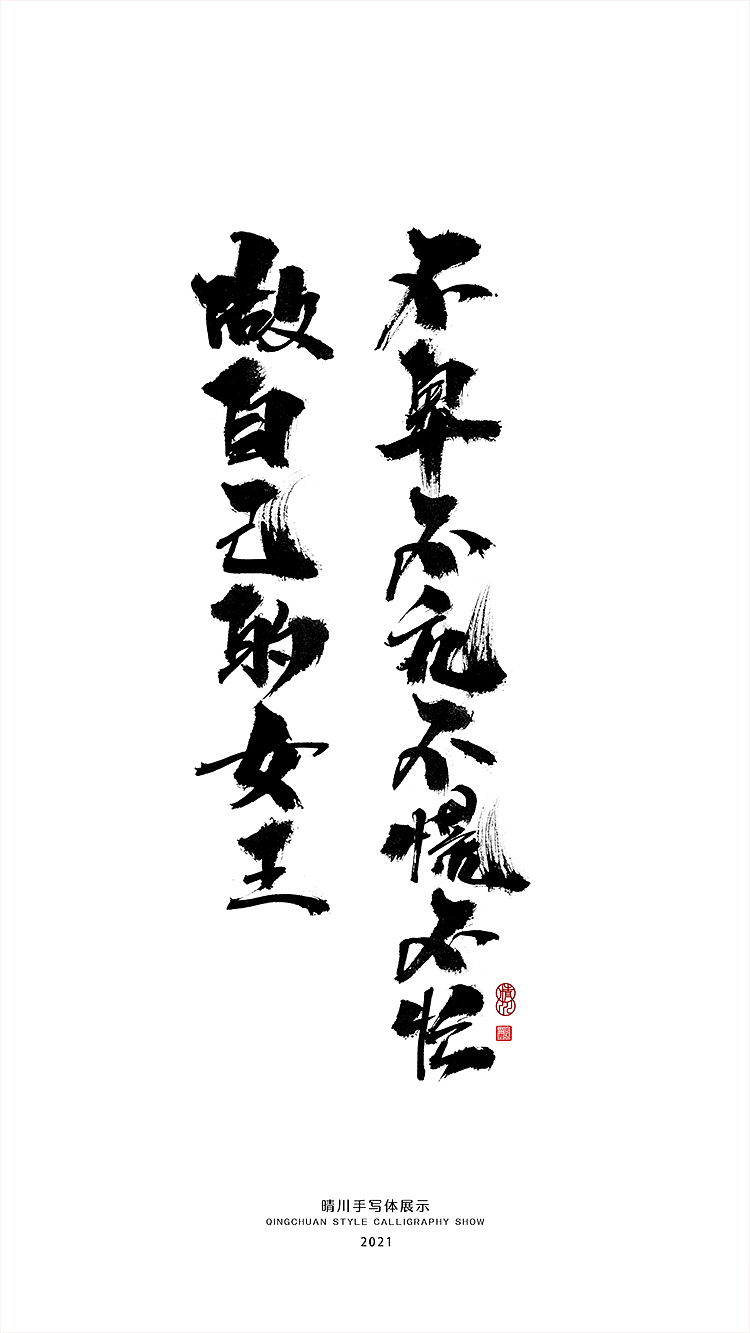 不卑不亢不慌不忙
做自己的女王
晴川手写体展示
QINGCHUAN STYLE CALLIGRAPHY SHOW
2021